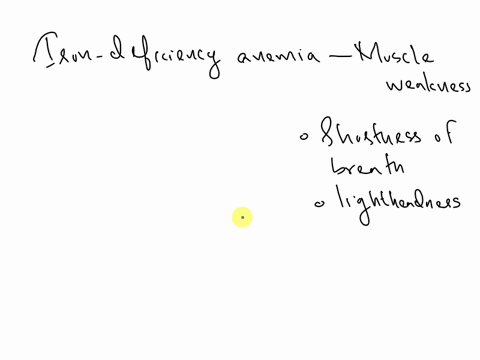 Iron-deficiency anemia — Muscle
weakness
• Shortness of
breath
• lightheadness